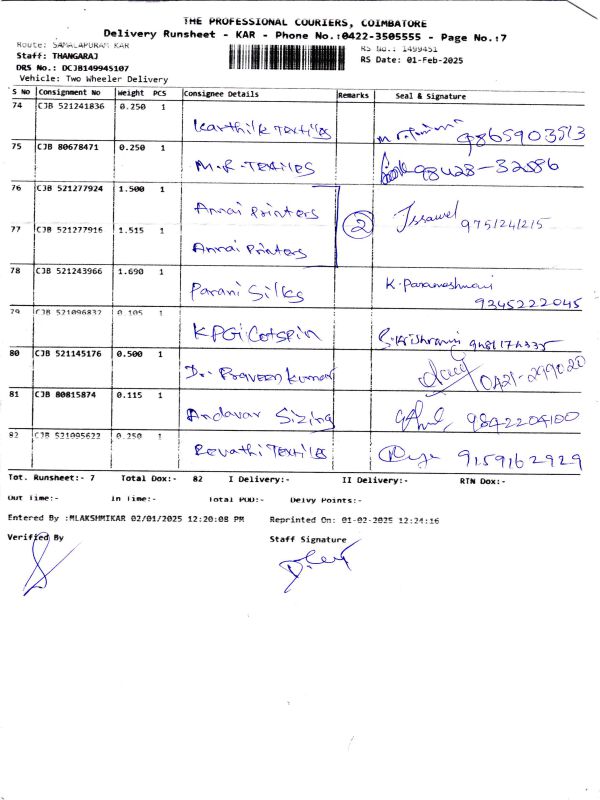 THE PROFESSIONAL COURIERS, COIMBATORE
Delivery Runsheet - KAR - Phone No.:0422-3505555 - Page No.:7
Route: SAMALAPURAM KAR RS No.: 1499451
Staff: THANGARAJ RS Date: 01-Feb-2025
DRS No.: DCJB149945107
Vehicle: Two Wheeler Delivery
S No Consignment No Weight PCS Consignee Details Remarks Seal & Signature
74 CJB 521241836 0.250 1
Karthik Textiles 9865903513
75 CJB 80678471 0.250 1
M.R. Textiles 98428-32586
76 CJB 521277924 1.500 1
Annai Printers 2 975124215
77 CJB 521277916 1.515 1
Annai Printers
78 CJB 521243966 1.690 1
Parani Silks K. Parameshwari
9345222045
79 CJB 521096832 0.105 1
KPG Cotspin
80 CJB 521145176 0.500 1
Dr. Praveen Kumar 0421-2999020
81 CJB 80815874 0.115 1
Andavar Sizing 9842204100
82 CJB 521095622 0.250 1
Revathi Textiles 9159162929
Tot. Runsheet:- 7 Total Dox:- 82 I Delivery:- II Delivery:- RTN Dox:-
Out Time:- In Time:- Total POD:- Delvy Points:-
Entered By :MLAKSHMIKAR 02/01/2025 12:20:08 PM Reprinted On: 01-02-2025 12:24:16
Verified By Staff Signature